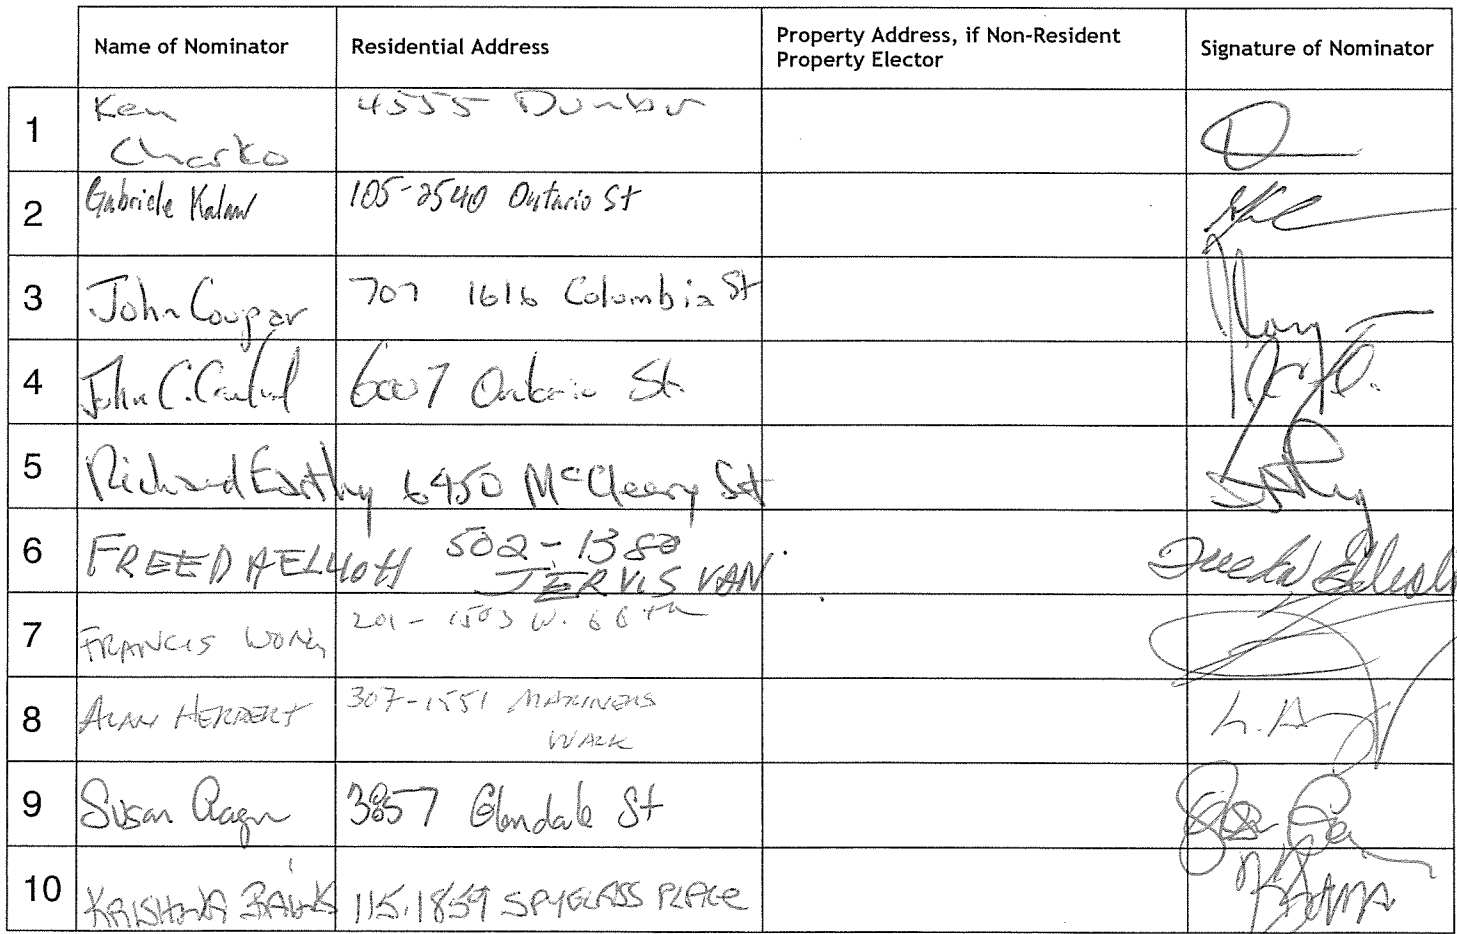 Name of Nominator Residential Address Property Address, if Non-Resident Property Elector Signature of Nominator
1 Ken Charko 4555 Dunbar
2 Gabriele Kalaw 105-2540 Ontario St
3 John Coupar 707 1616 Columbia St
4 John C. 6007 Ontario St.
5 Richard Earthy 6450 McCleery St
6 FREEDA ELLIOTT 502-1380 JERVIS VAN.
7 FRANCIS WONG 201-1503 W. 66th
8 ALAN HERBERT 307-1551 MARINERS WALK
9 Susan 3857 Glendale St
10 KRISHNA 115.1859 SPYGLASS PLACE